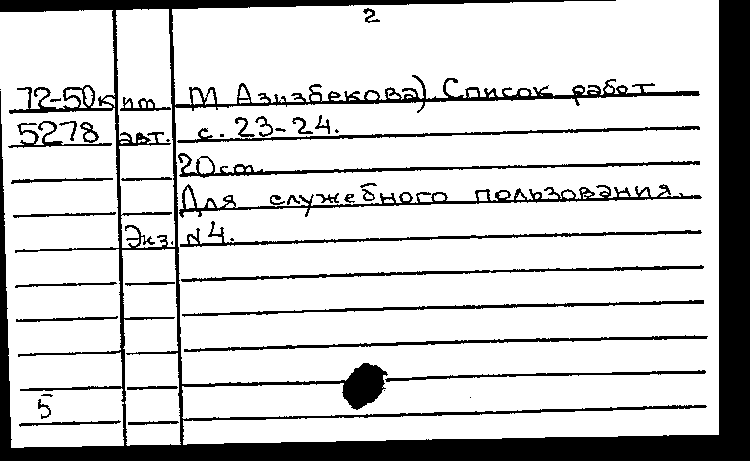 2
72-50к ит М Азизбекова) Список работ
5278 авт. с. 23-24.
20 см.
Для служебного пользования.
Экз. №4.
5